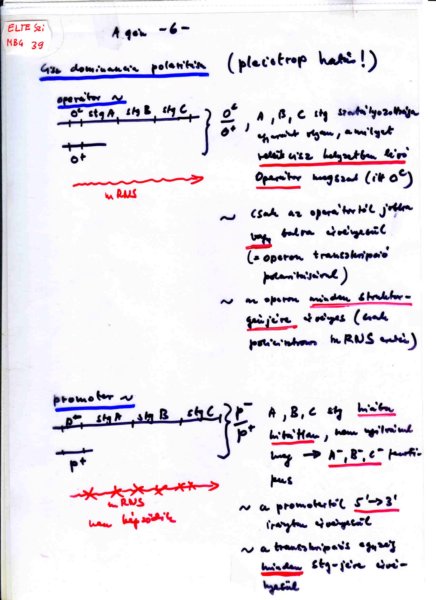 ELTE Szi
MBG 39
A gén -6-
Cisz dominancia polaritása (pleiotrop hatás!)
operátor ~
Oᶜ stg A stg B stg C
O⁺
mRNS
Oᶜ/O⁺, A, B, C stg szabályozottsága
egyaránt olyan, amilyet
velük cisz helyzetben lévő
Operátor megszab (itt Oᶜ)
~ csak az operátortól jobbra
vagy balra érvényesül
(= operon transzkripció
polaritásával)
~ az operon minden struktur-
génjére érvényes (csak
policisztronos mRNS esetén)
promoter ~
p⁻ stg A stg B stg C
p⁺
mRNS
nem képződik
p⁻/p⁺ A, B, C stg hiába
hibátlan, nem nyilvánul
meg → A⁻, B⁻, C⁻ fenotí-
pus
~ a promotertől 5'→3'
irányban érvényesül
~ a transzkripciós egység
minden stg-jére érvé-
nyesül